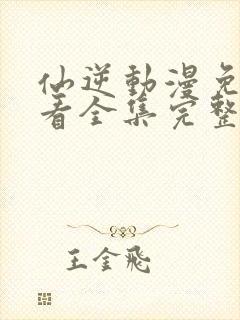 仙逆動漫免
看全集完整
王金飛